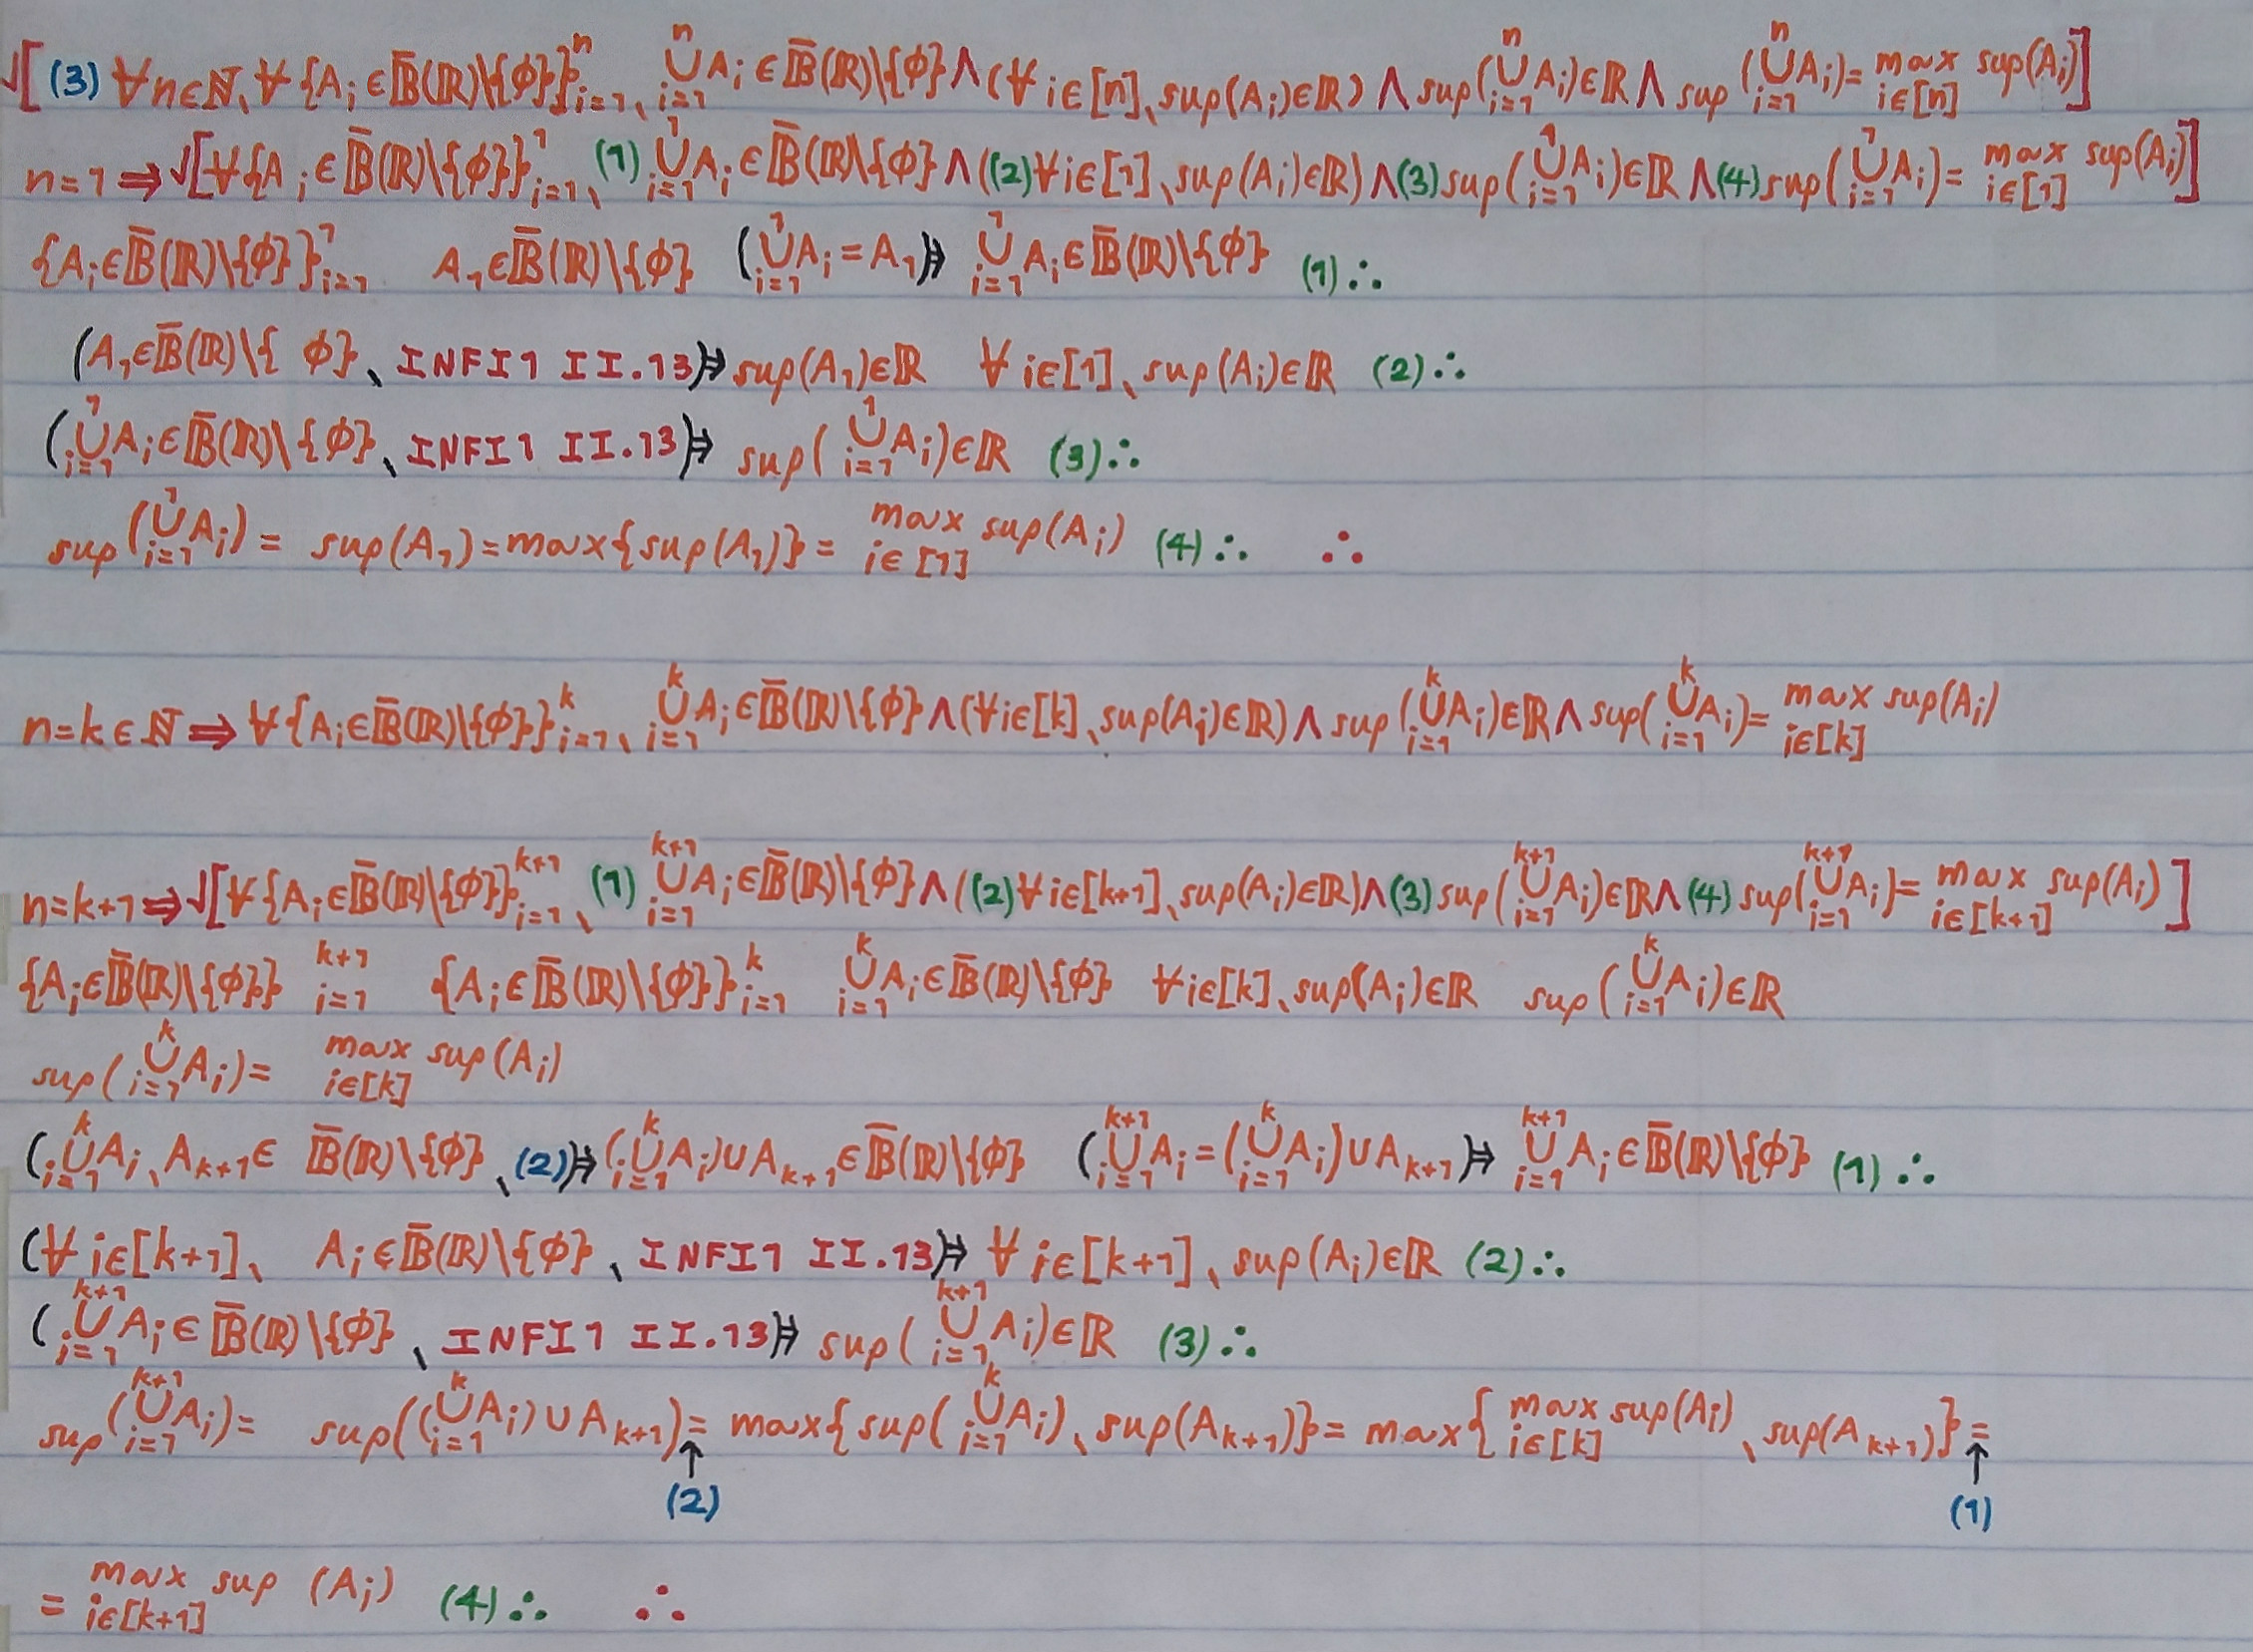 √[(3) ∀n∈ℕ、∀{A_i∈B̅(ℝ)\{ϕ}}_{i=1}^{n}、⋃_{i=1}^{n}A_i∈B̅(ℝ)\{ϕ}∧(∀i∈[n]、sup(A_i)∈ℝ)∧sup(⋃_{i=1}^{n}A_i)∈ℝ∧sup(⋃_{i=1}^{n}A_i)=max_{i∈[n]} sup(A_i)]
n=1⇒√[∀{A_i∈B̅(ℝ)\{ϕ}}_{i=1}^{1}、(1)⋃_{i=1}^{1}A_i∈B̅(ℝ)\{ϕ}∧((2)∀i∈[1]、sup(A_i)∈ℝ)∧(3)sup(⋃_{i=1}^{1}A_i)∈ℝ∧(4)sup(⋃_{i=1}^{1}A_i)=max_{i∈[1]} sup(A_i)]
{A_i∈B̅(ℝ)\{ϕ}}_{i=1}^{1} A_1∈B̅(ℝ)\{ϕ} (⋃_{i=1}^{1}A_i=A_1)⇒ ⋃_{i=1}^{1}A_i∈B̅(ℝ)\{ϕ} (1)∴
(A_1∈B̅(ℝ)\{ϕ}、INFI1 II.13)⇒ sup(A_1)∈ℝ ∀i∈[1]、sup(A_i)∈ℝ (2)∴
(⋃_{i=1}^{1}A_i∈B̅(ℝ)\{ϕ}、INFI1 II.13)⇒ sup(⋃_{i=1}^{1}A_i)∈ℝ (3)∴
sup(⋃_{i=1}^{1}A_i)= sup(A_1)=max{sup(A_1)}= max_{i∈[1]} sup(A_i) (4)∴ ∴
n=k∈ℕ⇒∀{A_i∈B̅(ℝ)\{ϕ}}_{i=1}^{k}、⋃_{i=1}^{k}A_i∈B̅(ℝ)\{ϕ}∧(∀i∈[k]、sup(A_i)∈ℝ)∧sup(⋃_{i=1}^{k}A_i)∈ℝ∧sup(⋃_{i=1}^{k}A_i)=max_{i∈[k]} sup(A_i)
n=k+1⇒√[∀{A_i∈B̅(ℝ)\{ϕ}}_{i=1}^{k+1}、(1)⋃_{i=1}^{k+1}A_i∈B̅(ℝ)\{ϕ}∧((2)∀i∈[k+1]、sup(A_i)∈ℝ)∧(3)sup(⋃_{i=1}^{k+1}A_i)∈ℝ∧(4)sup(⋃_{i=1}^{k+1}A_i)=max_{i∈[k+1]} sup(A_i)]
{A_i∈B̅(ℝ)\{ϕ}}_{i=1}^{k+1} {A_i∈B̅(ℝ)\{ϕ}}_{i=1}^{k} ⋃_{i=1}^{k}A_i∈B̅(ℝ)\{ϕ} ∀i∈[k]、sup(A_i)∈ℝ sup(⋃_{i=1}^{k}A_i)∈ℝ
sup(⋃_{i=1}^{k}A_i)= max_{i∈[k]} sup(A_i)
(⋃_{i=1}^{k}A_i、A_{k+1}∈B̅(ℝ)\{ϕ}、(2))⇒(⋃_{i=1}^{k}A_i)∪A_{k+1}∈B̅(ℝ)\{ϕ} (⋃_{i=1}^{k+1}A_i=(⋃_{i=1}^{k}A_i)∪A_{k+1})⇒ ⋃_{i=1}^{k+1}A_i∈B̅(ℝ)\{ϕ} (1)∴
(∀i∈[k+1]、A_i∈B̅(ℝ)\{ϕ}、INFI1 II.13)⇒ ∀i∈[k+1]、sup(A_i)∈ℝ (2)∴
(⋃_{i=1}^{k+1}A_i∈B̅(ℝ)\{ϕ}、INFI1 II.13)⇒ sup(⋃_{i=1}^{k+1}A_i)∈ℝ (3)∴
sup(⋃_{i=1}^{k+1}A_i)= sup((⋃_{i=1}^{k}A_i)∪A_{k+1})= max{sup(⋃_{i=1}^{k}A_i)、sup(A_{k+1})}= max{max_{i∈[k]} sup(A_i)、sup(A_{k+1})}=
↑ ↑
(2) (1)
= max_{i∈[k+1]} sup(A_i) (4)∴ ∴